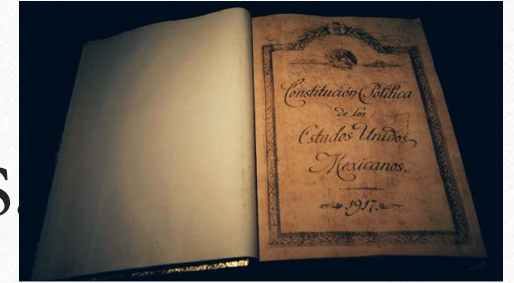 Constitución Política
de los
Estados Unidos
Mexicanos.
1917.
s.